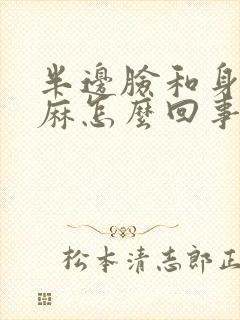 半邊臉和身
麻怎麼回事
松本清志郎正